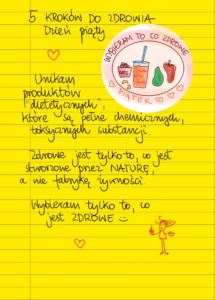 5 KROKÓW DO ZDROWIA
Dzień piąty
WYBIERAM TO CO ZDROWE
PIĄTEK
Unikam
produktów
"dietetycznych",
które są pełne chemicznych,
toksycznych substancji.
Zdrowe jest tylko to, co jest
stworzone przez NATURĘ,
a nie fabrykę żywności.
Wybieram tylko to, co
jest ZDROWE